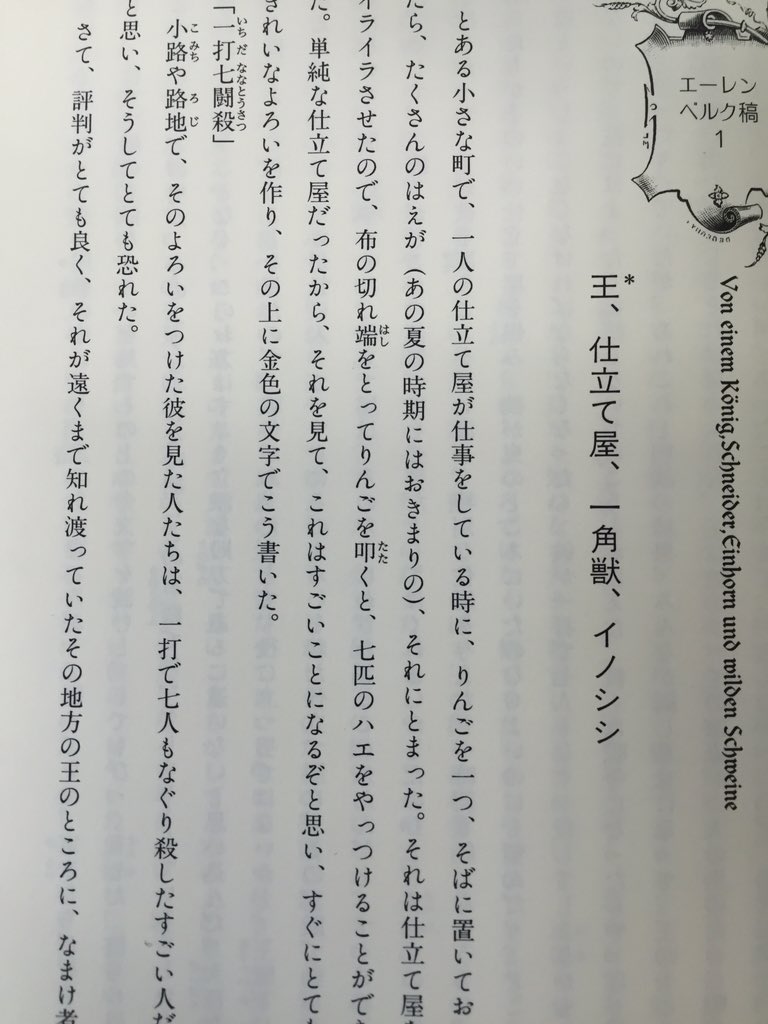 エーレン
ベルク稿
1
Von einem König, Schneider, Einhorn und wilden Schweine
*王、仕立て屋、一角獣、イノシシ
とある小さな町で、一人の仕立て屋が仕事をしている時に、りんごを一つ、そばに置いてお
たら、たくさんのはえが（あの夏の時期にはおきまりの）、それにとまった。それは仕立て屋
イライラさせたので、布の切れ端をとってりんごを叩くと、七匹のハエをやっつけることができ
た。単純な仕立て屋だったから、それを見て、これはすごいことになるぞと思い、すぐにとても
きれいなよろいを作り、その上に金色の文字でこう書いた。
「一打七闘殺」
小路や路地で、そのよろいをつけた彼を見た人たちは、一打で七人もなぐり殺したすごい人だ
と思い、そうしてとても恐れた。
さて、評判がとても良く、それが遠くまで知れ渡っていたその地方の王のところに、なまけ者